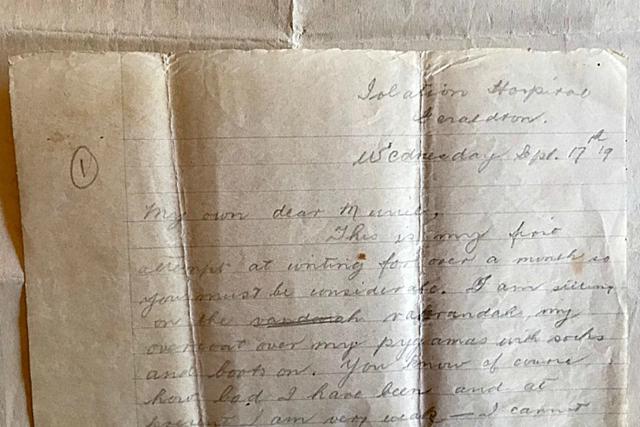 Isolation Hospital
Geraldton.
Wednesday Sept. 17th 19
1
My own dear
This is my first
attempt at writing for over a month so
you must be considerate. I am sitting
on the verandah, my
overcoat over my pyjamas with socks
and boots on. You know of course
how bad I have been and at
present I am very weak — I cannot